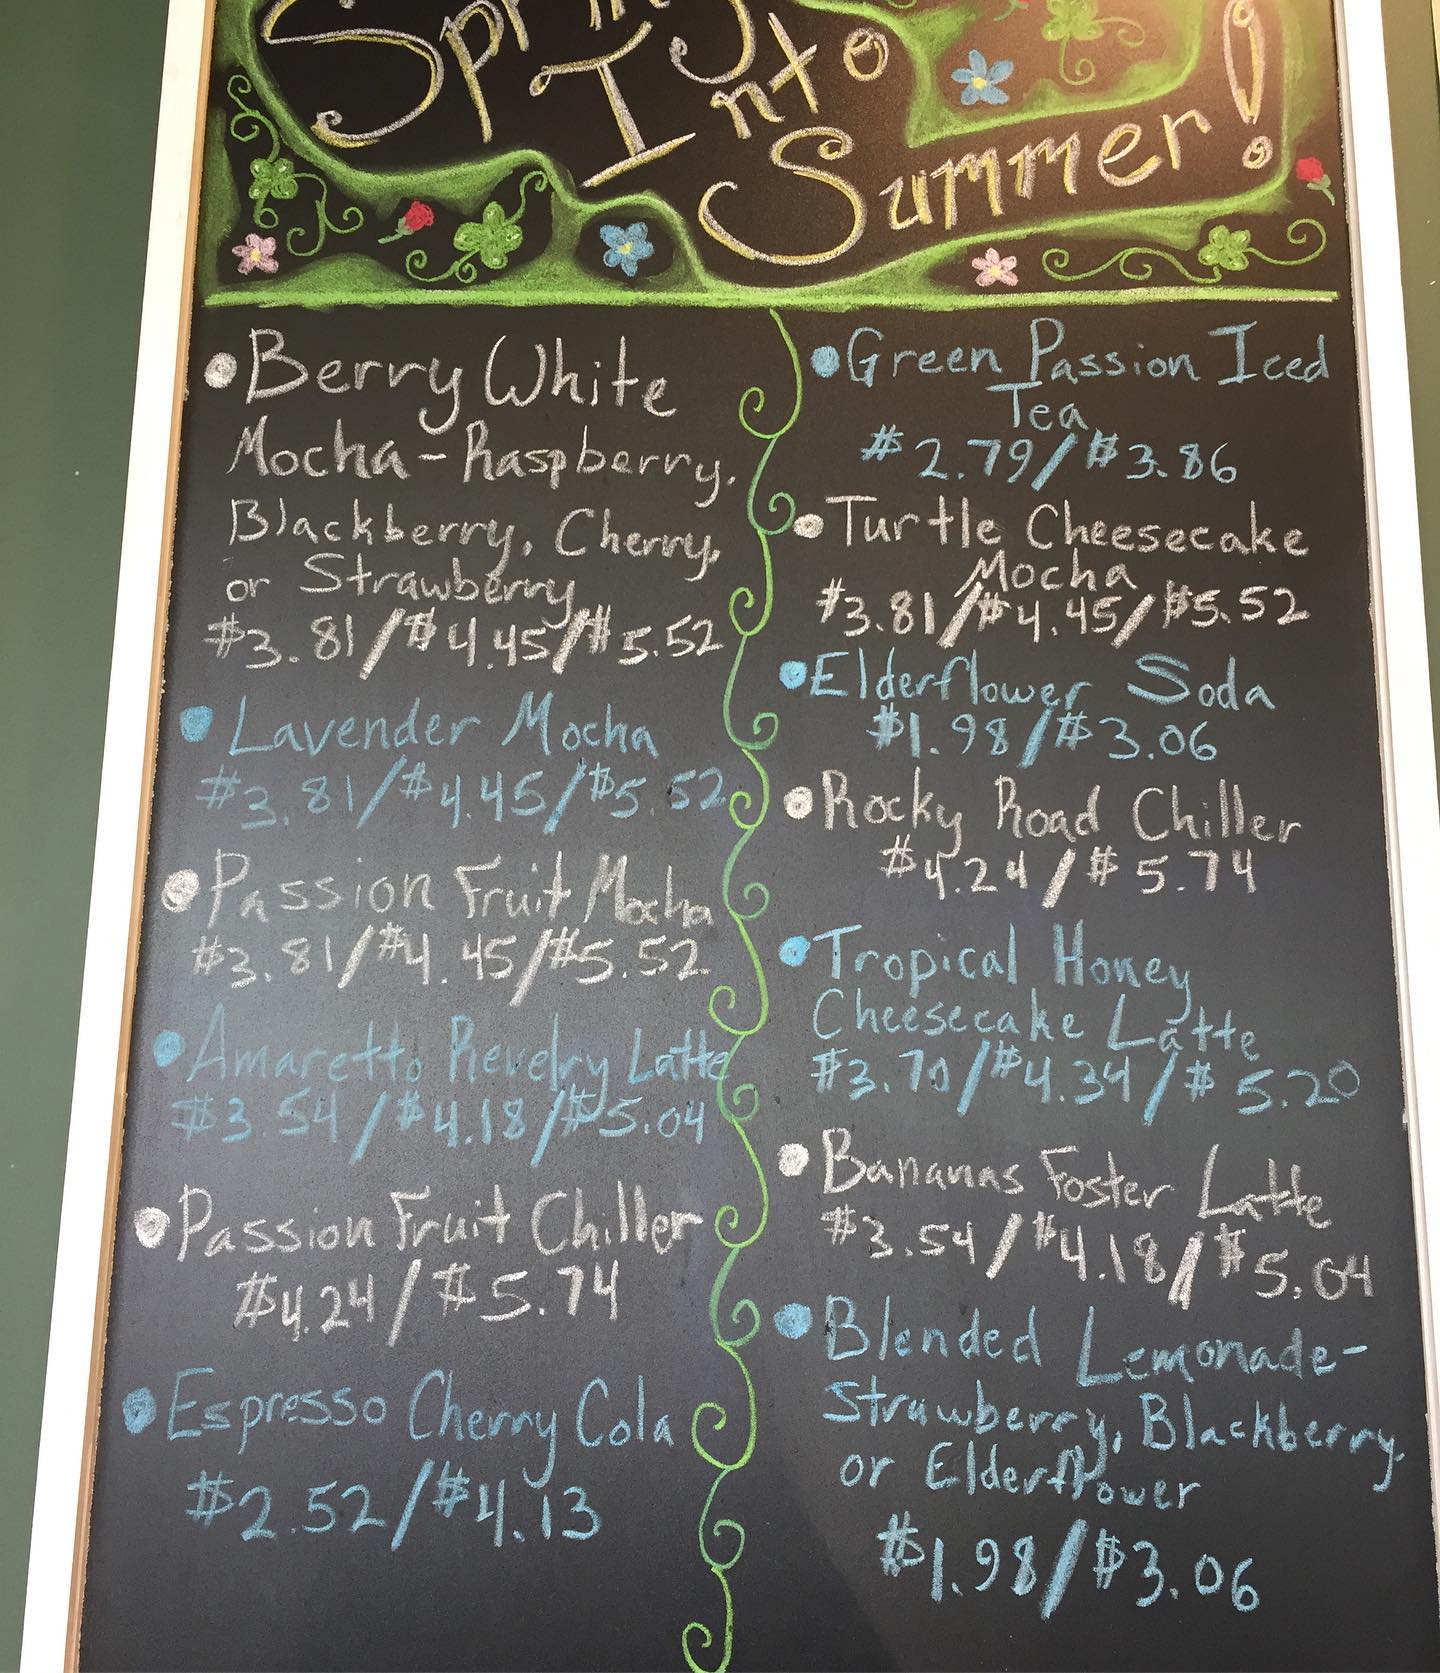 Spring
Into
Summer!
•Berry White
Mocha-Raspberry,
Blackberry, Cherry,
or Strawberry
$3.81/$4.45/$5.52
•Lavender Mocha
$3.81/$4.45/$5.52
•Passion Fruit Mocha
$3.81/$4.45/$5.52
•Amaretto Revelry Latte
$3.54/$4.18/$5.04
•Passion Fruit Chiller
$4.24/$5.74
•Espresso Cherry Cola
$2.52/$4.13
•Green Passion Iced
Tea
$2.79/$3.86
•Turtle Cheesecake
Mocha
$3.81/$4.45/$5.52
•Elderflower Soda
$1.98/$3.06
•Rocky Road Chiller
$4.24/$5.74
•Tropical Honey
Cheesecake Latte
$3.70/$4.34/$5.20
•Bananas Foster Latte
$3.54/$4.18/$5.04
•Blended Lemonade-
Strawberry, Blackberry,
or Elderflower
$1.98/$3.06